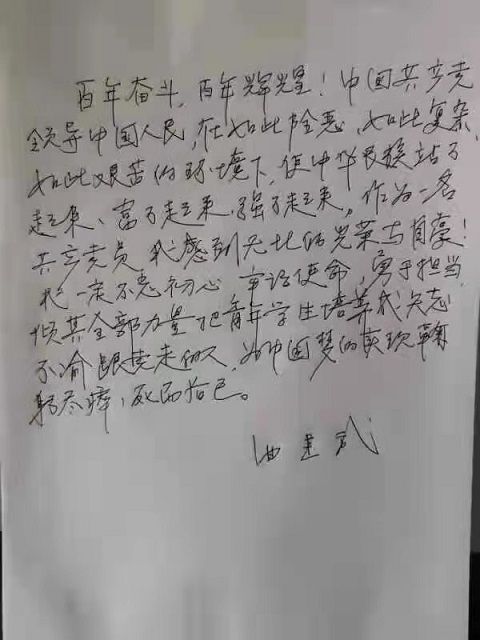 百年奋斗，百年辉煌！中国共产党
领导中国人民，在如此险恶、如此复杂、
如此艰苦的环境下，使中华民族站了
起来、富了起来、强了起来。作为一名
共产党员，我感到无比的光荣与自豪！
我一定不忘初心，牢记使命，勇于担当，
倾其全部力量把青年学生培养成矢志
不渝跟党走的人，为中国梦的实现鞠
躬尽瘁，死而后已。
曲建武